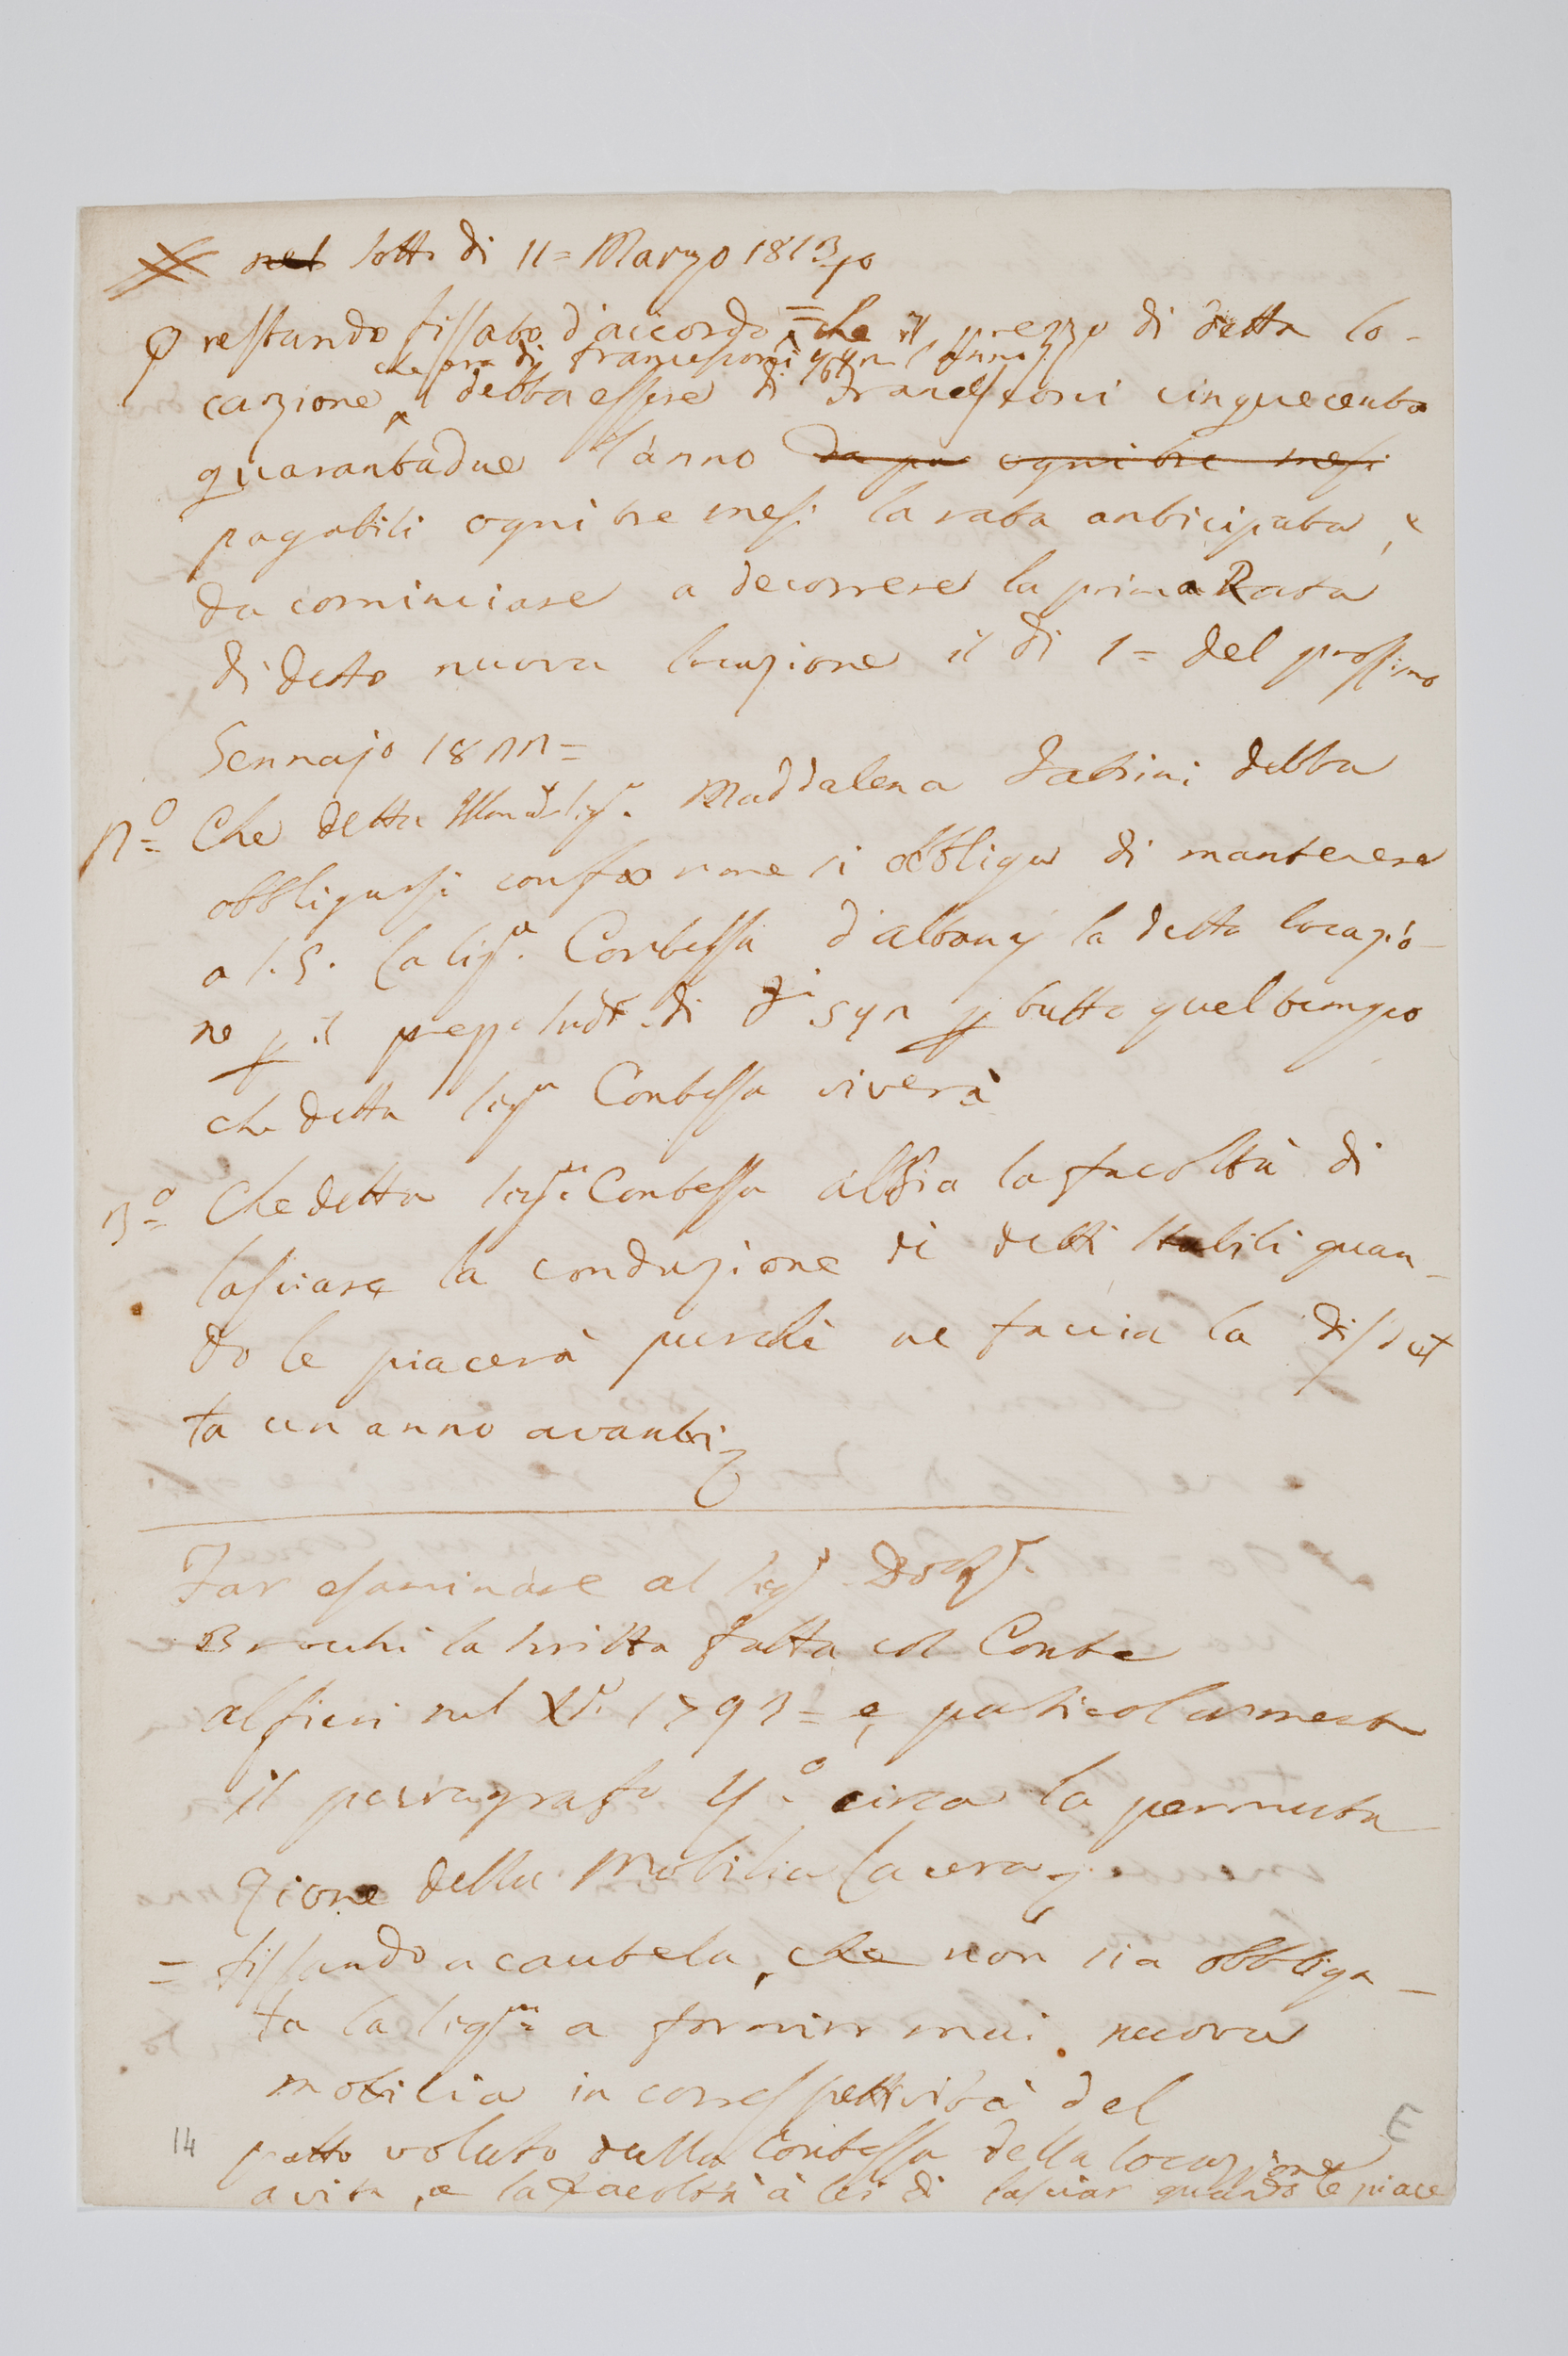 nel sotto di 11 = Marzo 1813
restando fissato d'accordo = che il prezzo di detta lo-
che era di francesconi 494 l'anno
cazione debba essere di Francesconi cinquecento
quarantadue l'anno da pa ogni tre mesi
pagabili ogni tre mesi la rata anticipata, e
da cominciare a decorrere la prima Rata
di detta nuova locazione il di 1= del prossimo
Gennajo 1822=
2°= Che detta Sig.ra Maddalena Fabrini debba
obbligarsi conforme si obbliga di mantenere
a S.E. la Sig.ra Contessa d'Albany la detta locazio-
ne p il prezzo sud.o di F.i 542 p tutto quel tempo
che detta Sig.ra Contessa viverà
3°= Che detta Sig.ra Contessa abbia la facoltà di
lasciare la conduzione di detti Stabili quan-
do le piacerà purchè ne faccia la disdet
ta un anno avanti
Far esaminare al Sig.r Dott.r
Brocchi la scritta fatta col Conte
Alfieri nel 1793= e particolarmente
il paragrafo 4.° circa la permuta
zione della Mobilia lacera
= fissando a cautela, che non sia obbliga-
ta la Sig.ra a fornirr mai nuova
mobilia in correspettività del
patto voluto dalla Contessa della locazione
a vita, e la facoltà à lei di lasciar quando le piace
14
E